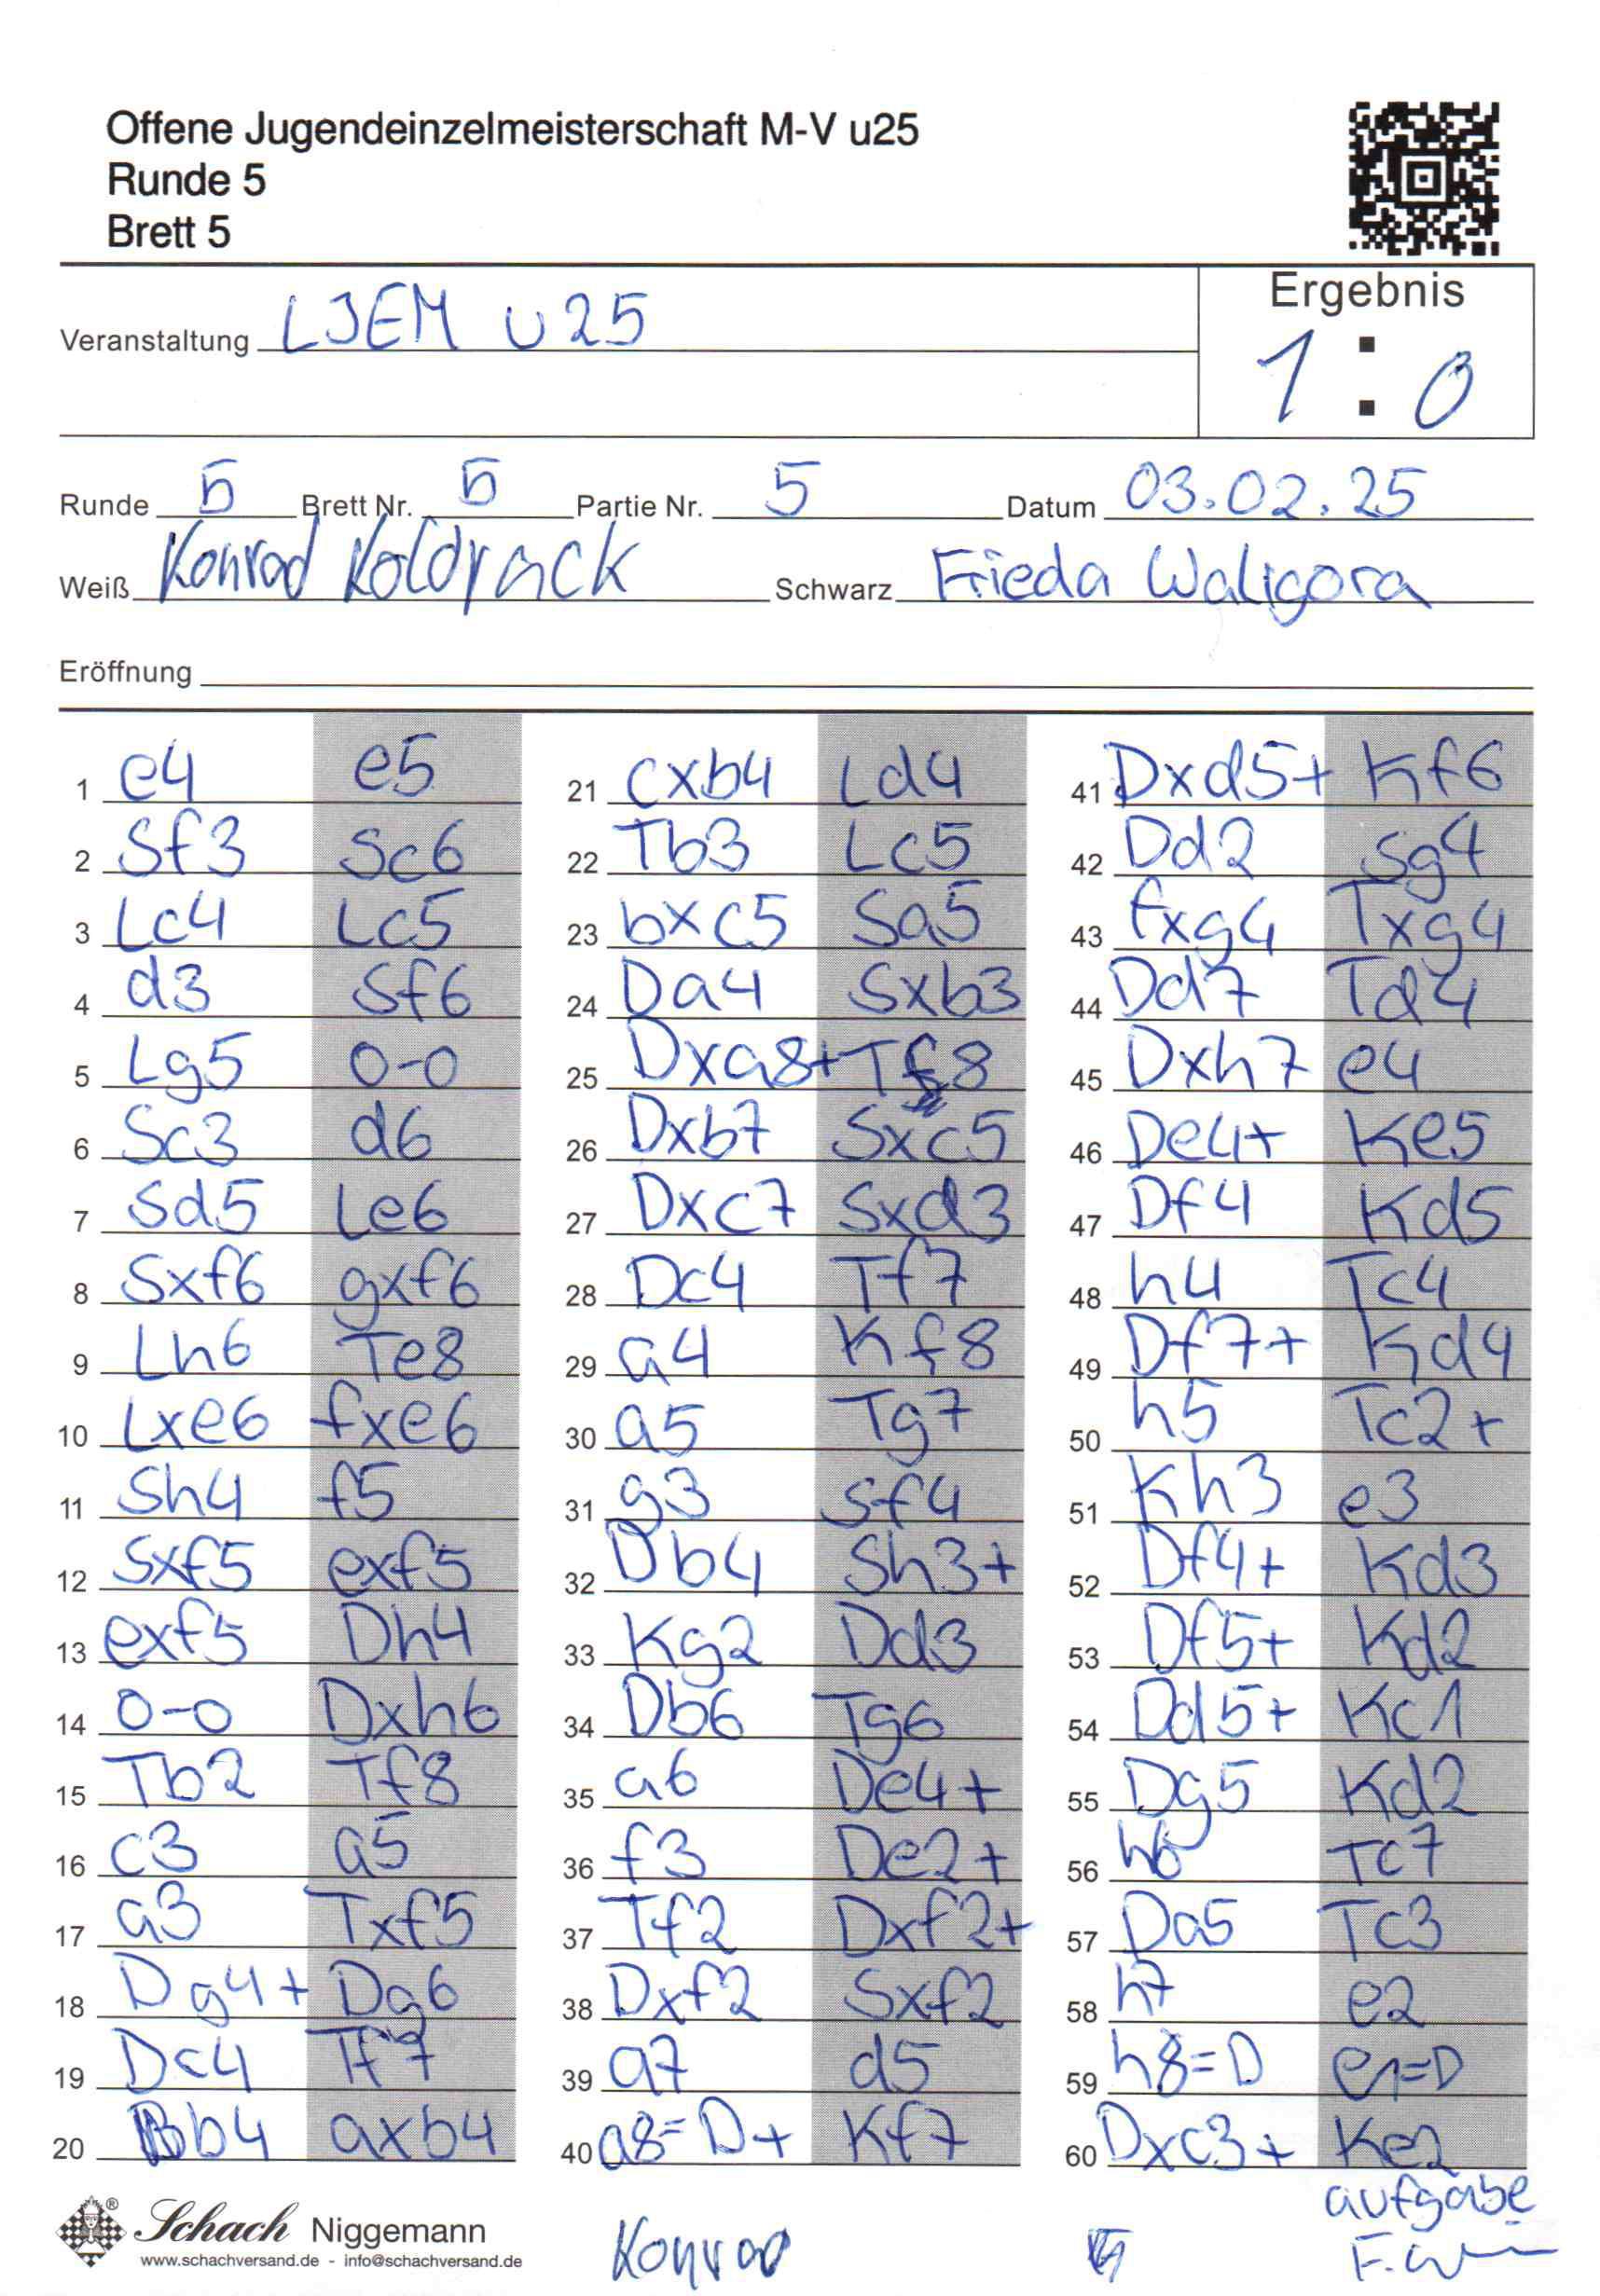 Offene Jugendeinzelmeisterschaft M-V u25
Runde 5
Brett 5
Ergebnis
Veranstaltung LJEM u25
1 : 0
Runde 5 Brett Nr. 5 Partie Nr. 5 Datum 03.02.25
Weiß Konrad Koldrack Schwarz Frieda Waligora
Eröffnung
1 e4 e5
2 Sf3 Sc6
3 Lc4 Lc5
4 d3 Sf6
5 Lg5 0-0
6 Sc3 d6
7 Sd5 Le6
8 Sxf6 gxf6
9 Lh6 Te8
10 Lxe6 fxe6
11 Sh4 f5
12 Sxf5 exf5
13 exf5 Dh4
14 0-0 Dxh6
15 Tb2 Tf8
16 c3 a5
17 a3 Txf5
18 Dg4+ Dg6
19 Dc4 Tf7
20 Bb4 axb4
21 cxb4 Ld4
22 Tb3 Lc5
23 bxc5 Sa5
24 Da4 Sxb3
25 Dxa8+ Tf8
26 Dxb7 Sxc5
27 Dxc7 Sxd3
28 Dc4 Tf7
29 a4 Kf8
30 a5 Tg7
31 g3 Sf4
32 Db4 Sh3+
33 Kg2 Dd3
34 Db6 Tg6
35 a6 De4+
36 f3 De2+
37 Tf2 Dxf2+
38 Dxf2 Sxf2
39 a7 d5
40 a8=D+ Kf7
41 Dxd5+ Kf6
42 Dd2 Sg4
43 fxg4 Txg4
44 Dd7 Td4
45 Dxh7 e4
46 De4+ Ke5
47 Df4 Kd5
48 h4 Tc4
49 Df7+ Kd4
50 h5 Tc2+
51 Kh3 e3
52 Df4+ Kd3
53 Df5+ Kd2
54 Dd5+ Kc1
55 Dg5 Kd2
56 h6 Tc7
57 Da5 Tc3
58 h7 e2
59 h8=D e1=D
60 Dxc3+ Ke2
aufgabe
Schach Niggemann
www.schachversand.de - info@schachversand.de
Konrad